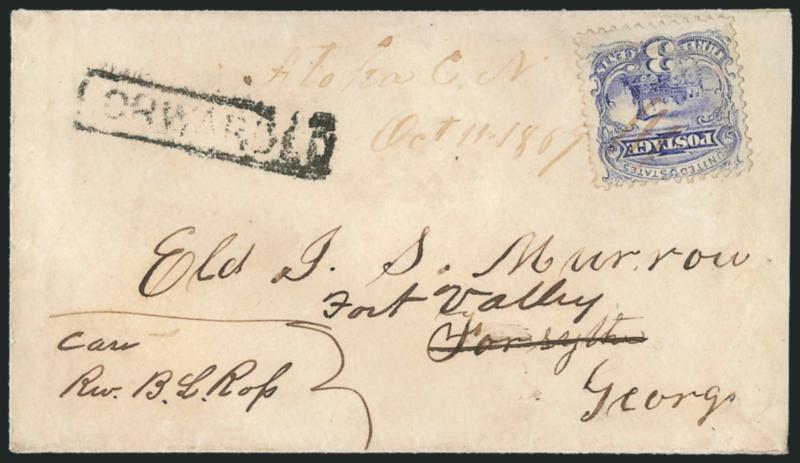 Atoka C. N.
Oct 11. 1869
FORWARDED
THREE CENTS
3
POSTAGE
UNITED STATES
Eld J. S. Murrow
Fort Valley
Forsyth
Georg
Care
Rev. B. L. Ross